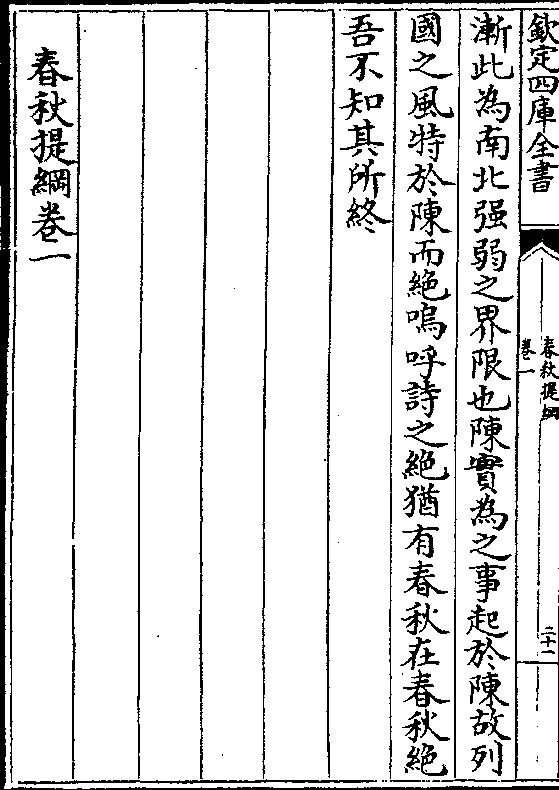 欽定四庫全書
春秋提綱
卷一
二十一
漸此為南北强弱之界限也陳實為之事起於陳故列
國之風特於陳而絶嗚呼詩之絶猶有春秋在春秋絶
吾不知其所終
春秋提綱卷一